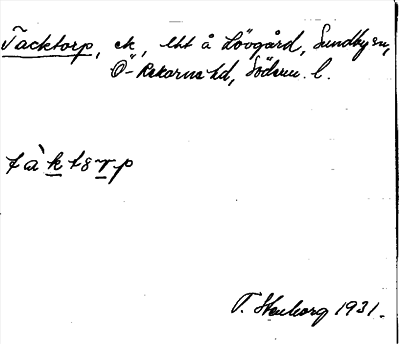 Tacktorp, ek, utt å Lövgård, Sundby sn,
Ö-Rekarne hd, Söderm. l.
tàktɜrp
T. Stenborg 1931.